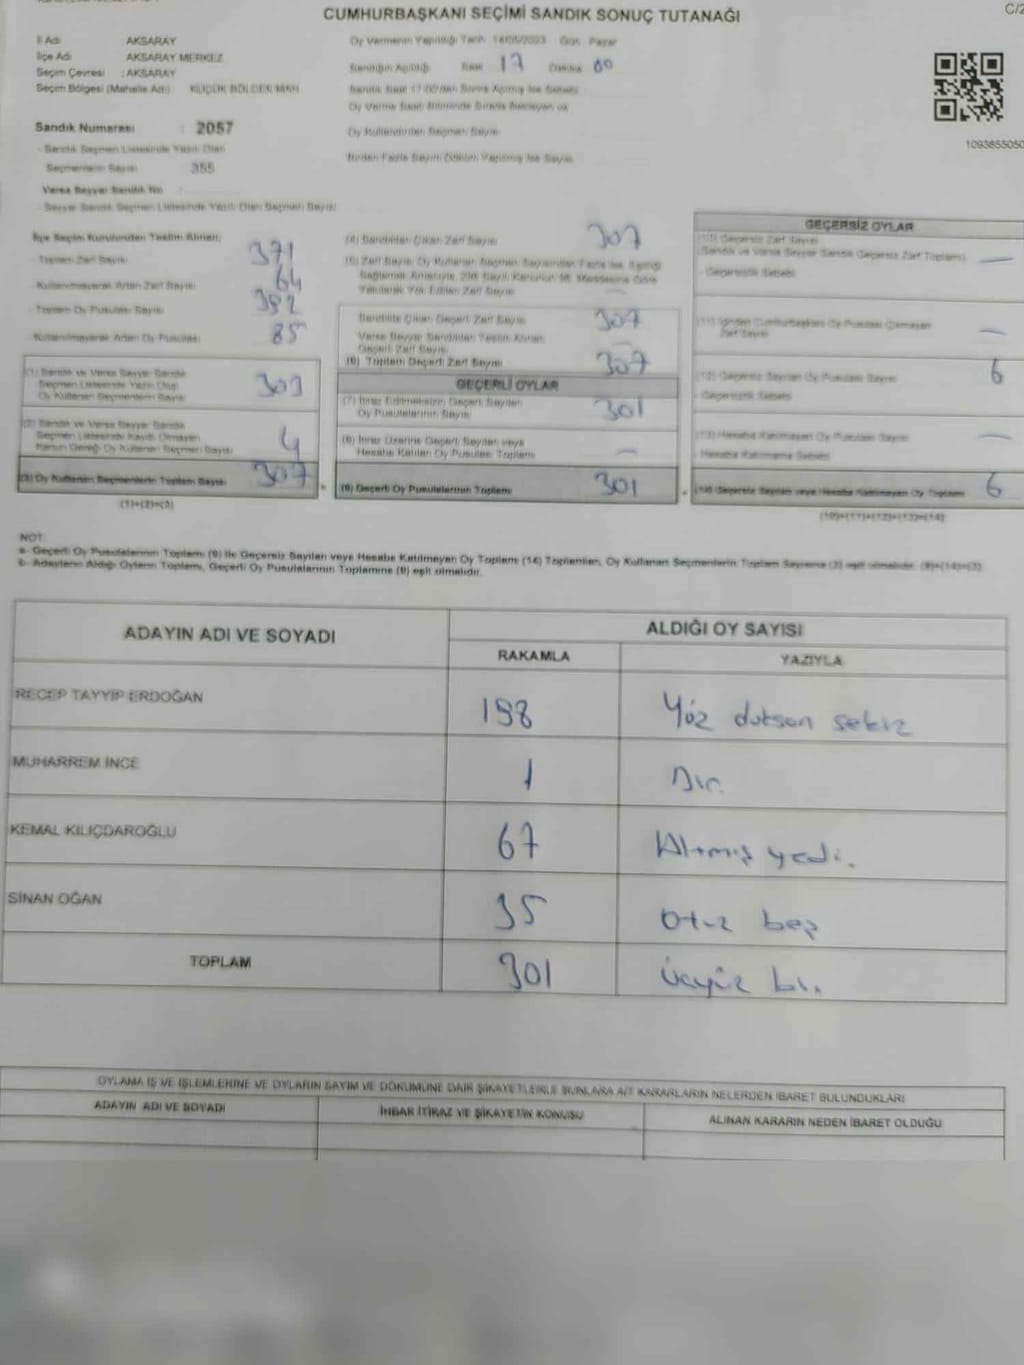 CUMHURBAŞKANI SEÇİMİ SANDIK SONUÇ TUTANAĞI
C/2
İl Adı AKSARAY
İlçe Adı AKSARAY MERKEZ
Seçim Çevresi : AKSARAY
Seçim Bölgesi (Mahalle Adı)
Oy Vermenin Yapıldığı Tarih 14/05/2023 Gün Pazar
Sandığın Açıldığı Saat 17 Dakika 00
1093855050
Sandık Numarası : 2057
Sandık Seçmen Listesinde Yazılı Olan
Seçmenlerin Sayısı 355
Varsa Seyyar Sandık No
Seyyar Sandık Seçmen Listesinde Yazılı Olan Seçmen Sayısı
Oy Kullandırılan Seçmen Sayısı
Birden Fazla Sayım Döküm Yapılmış İse Sayısı
İlçe Seçim Kurulundan Teslim Alınan;
- Toplam Zarf Sayısı 371
- Kullanılmayarak Artan Zarf Sayısı 64
- Toplam Oy Pusulası Sayısı
- Kullanılmayarak Artan Oy Pusulası 85
(1) Sandık ve Varsa Seyyar Sandık
Seçmen Listesinde Yazılı Olup
Oy Kullanan Seçmenlerin Sayısı 303
(2) Sandık ve Varsa Seyyar Sandık
Seçmen Listesinde Kayıtlı Olmayan
Kanun Gereği Oy Kullanan Seçmen Sayısı 4
(3) Oy Kullanan Seçmenlerin Toplam Sayısı 307
(1)+(2)=(3)
(4) Sandıktan Çıkan Zarf Sayısı 307
Sandıkta Çıkan Geçerli Zarf Sayısı 307
Varsa Seyyar Sandıktan Teslim Alınan
Geçerli Zarf Sayısı —
(6) Toplam Geçerli Zarf Sayısı 307
GEÇERLİ OYLAR
(7) İtiraz Edilmeksizin Geçerli Sayılan
Oy Pusulalarının Sayısı 301
(8) İtiraz Üzerine Geçerli Sayılan veya
Hesaba Katılan Oy Pusulası Toplamı —
(9) Geçerli Oy Pusulalarının Toplamı 301
GEÇERSİZ OYLAR
(10) Geçersiz Zarf Sayısı
(Sandık ve Varsa Seyyar Sandık Geçersiz Zarf Toplamı) —
- Geçersizlik Sebebi
(11) İçinden Cumhurbaşkanı Oy Pusulası Çıkmayan
Zarf Sayısı —
(12) Geçersiz Sayılan Oy Pusulası Sayısı 6
- Geçersizlik Sebebi
(13) Hesaba Katılmayan Oy Pusulası Sayısı —
- Hesaba Katılmama Sebebi
(14) Geçersiz Sayılan veya Hesaba Katılmayan Oy Toplamı 6
(10)+(11)+(12)+(13)=(14)
NOT:
a- Geçerli Oy Pusulalarının Toplamı (9) ile Geçersiz Sayılan veya Hesaba Katılmayan Oy Toplamı (14) Toplamları, Oy Kullanan Seçmenlerin Toplam Sayısına (3) eşit olmalıdır. (9)+(14)=(3)
b- Adayların Aldığı Oyların Toplamı, Geçerli Oy Pusulalarının Toplamına (9) eşit olmalıdır.
ADAYIN ADI VE SOYADI ALDIĞI OY SAYISI
RAKAMLA YAZIYLA
RECEP TAYYİP ERDOĞAN 198 Yüz doksan sekiz
MUHARREM İNCE 1 Bir.
KEMAL KILIÇDAROĞLU 67 Altmış yedi.
SİNAN OĞAN 35 Otuz beş
TOPLAM 301 Üçyüz bir.
OYLAMA İŞ VE İŞLEMLERİNE VE OYLARIN SAYIM VE DÖKÜMÜNE DAİR ŞİKAYETLERLE BUNLARA AİT KARARLARIN NELERDEN İBARET BULUNDUKLARI
ADAYIN ADI VE SOYADI İHBAR İTİRAZ VE ŞİKAYETİN KONUSU ALINAN KARARIN NEDEN İBARET OLDUĞU